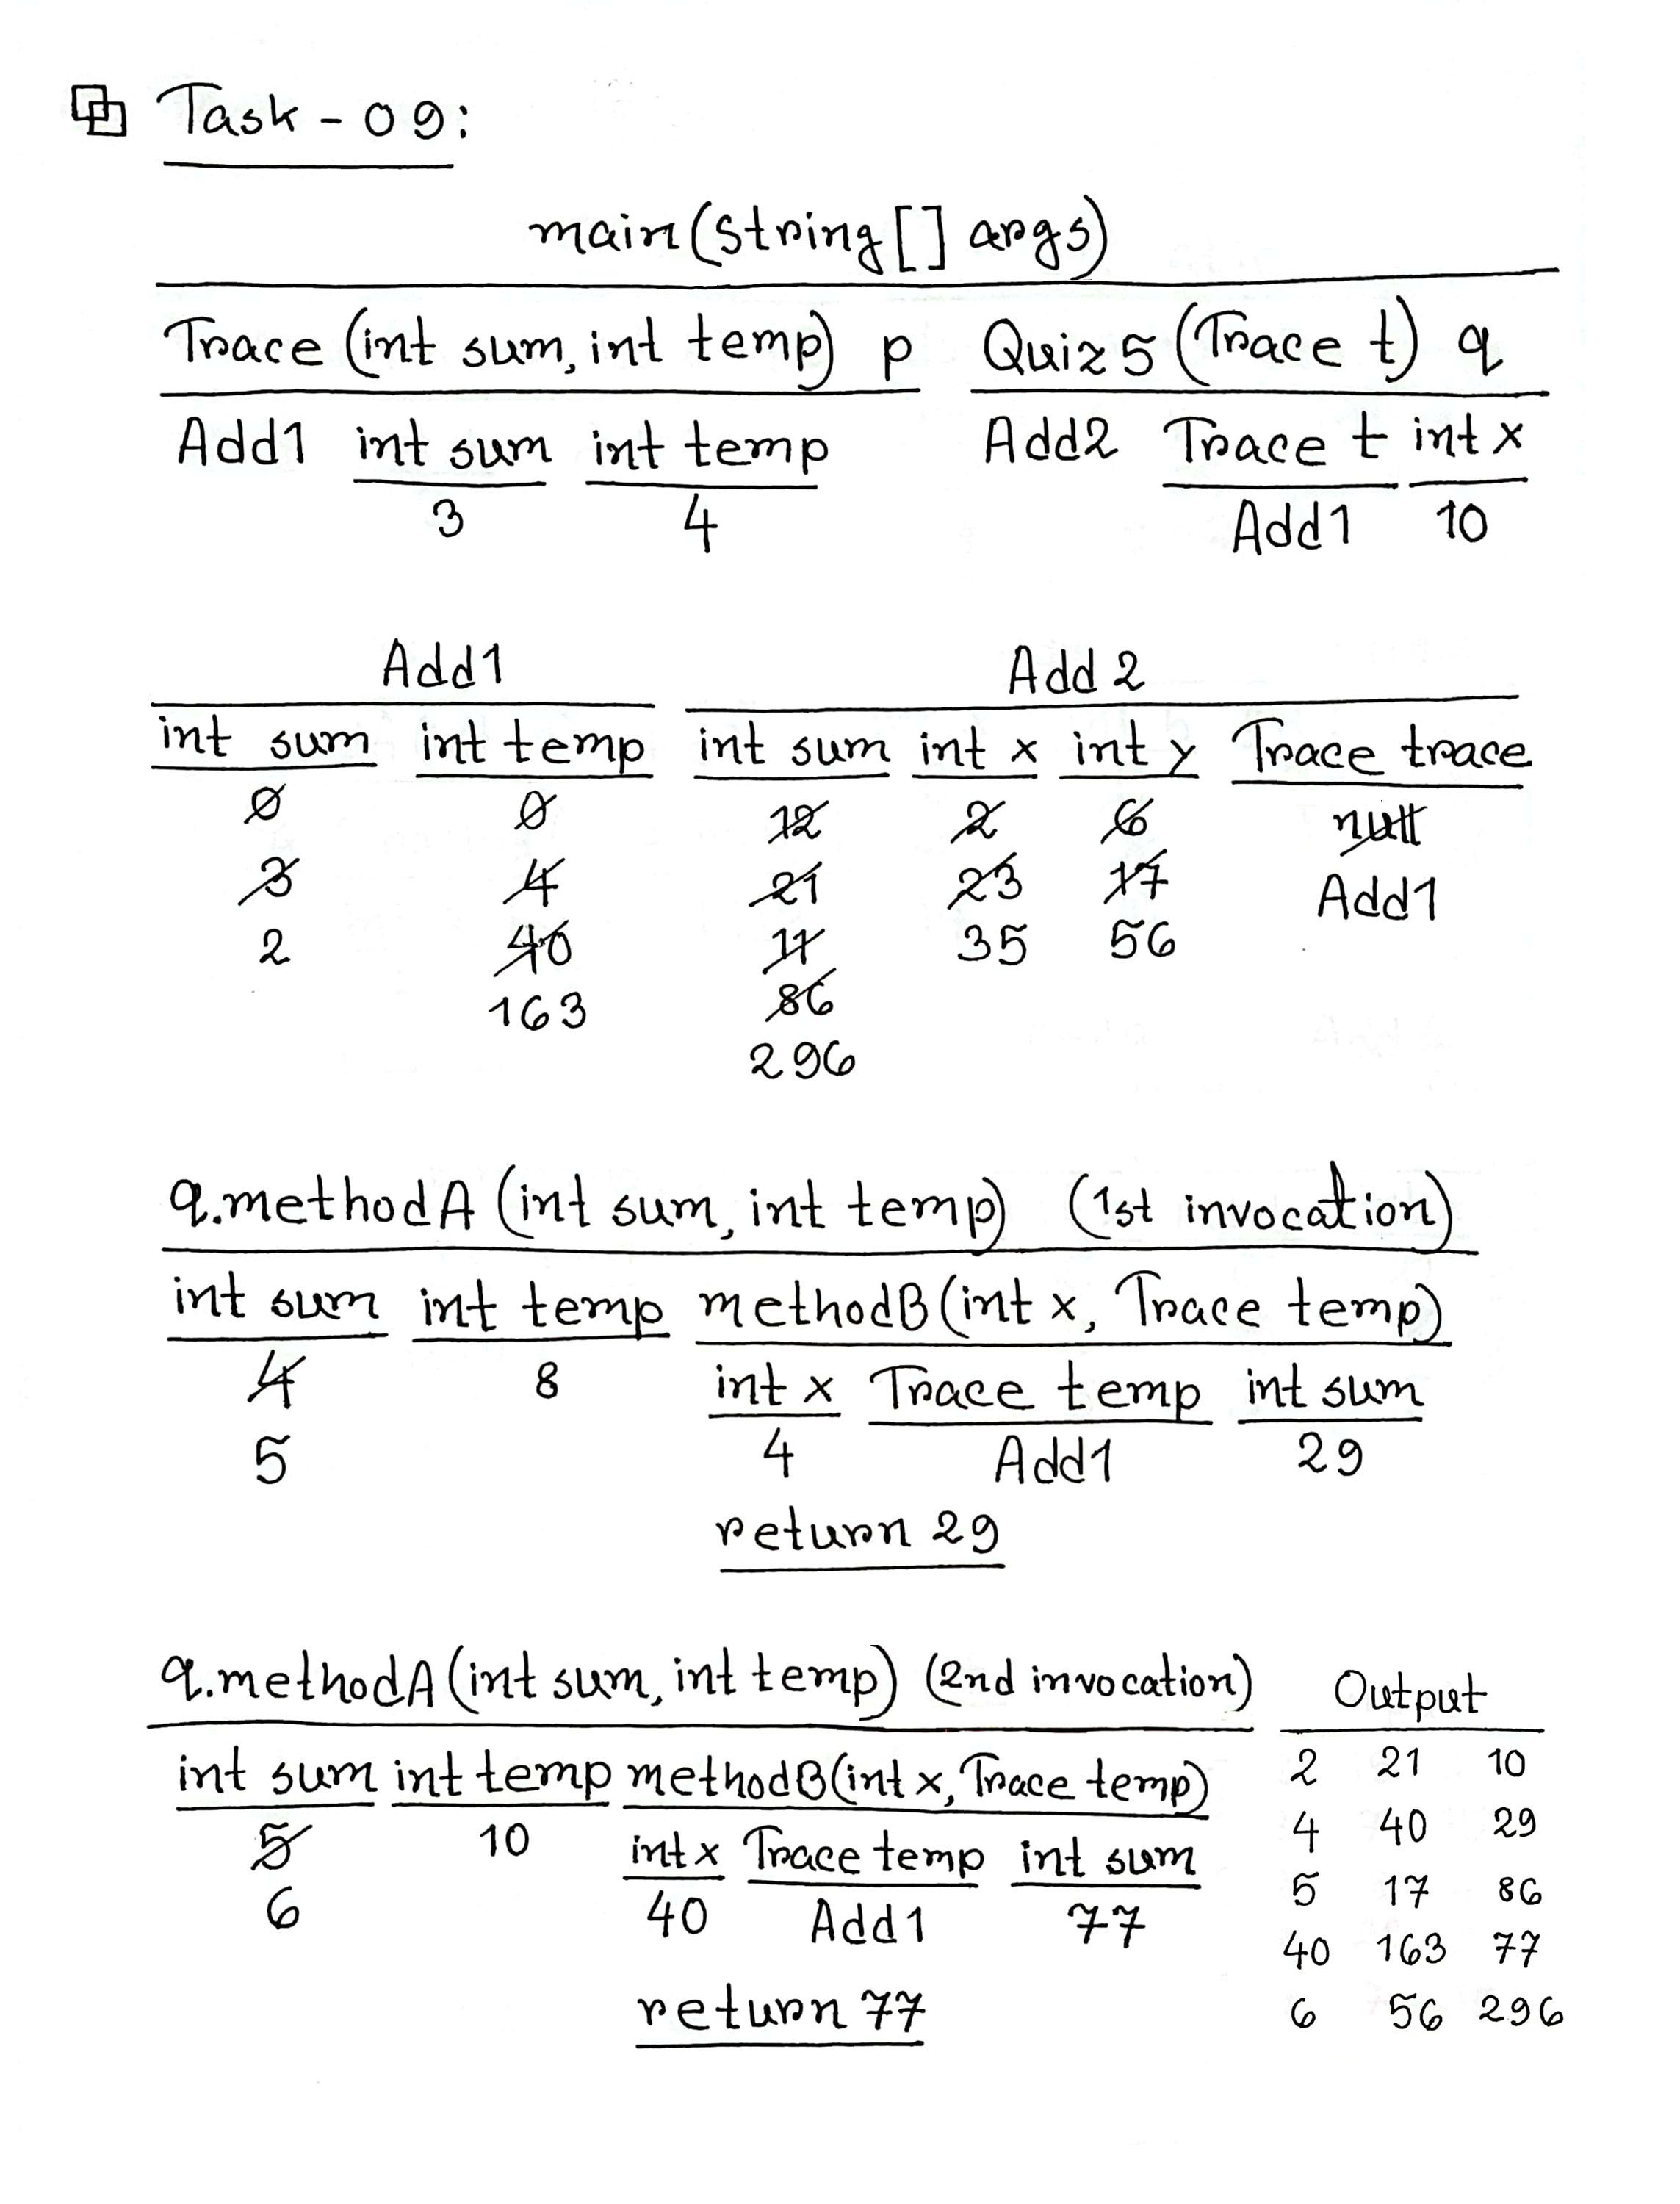 Task - 09:
main(String[] args)
Trace (int sum, int temp) p Quiz5 (Trace t) q
Add1 int sum int temp Add2 Trace t int x
3 4 Add1 10
Add1 Add 2
int sum int temp int sum int x int y Trace trace
0 0 12 2 6 null
3 4 21 23 17 Add1
2 40 11 35 56
163 86
296
q.methodA (int sum, int temp) (1st invocation)
int sum int temp methodB(int x, Trace temp)
4 8 int x Trace temp int sum
5 4 Add1 29
return 29
q.methodA (int sum, int temp) (2nd invocation) Output
int sum int temp methodB(int x, Trace temp) 2 21 10
5 10 int x Trace temp int sum 4 40 29
6 40 Add1 77 5 17 86
40 163 77
return 77 6 56 296